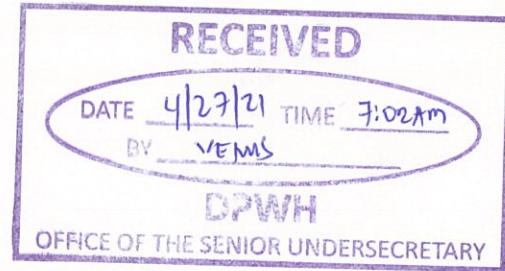 RECEIVED
DATE 4/27/21 TIME 7:02AM
BY
DPWH
OFFICE OF THE SENIOR UNDERSECRETARY